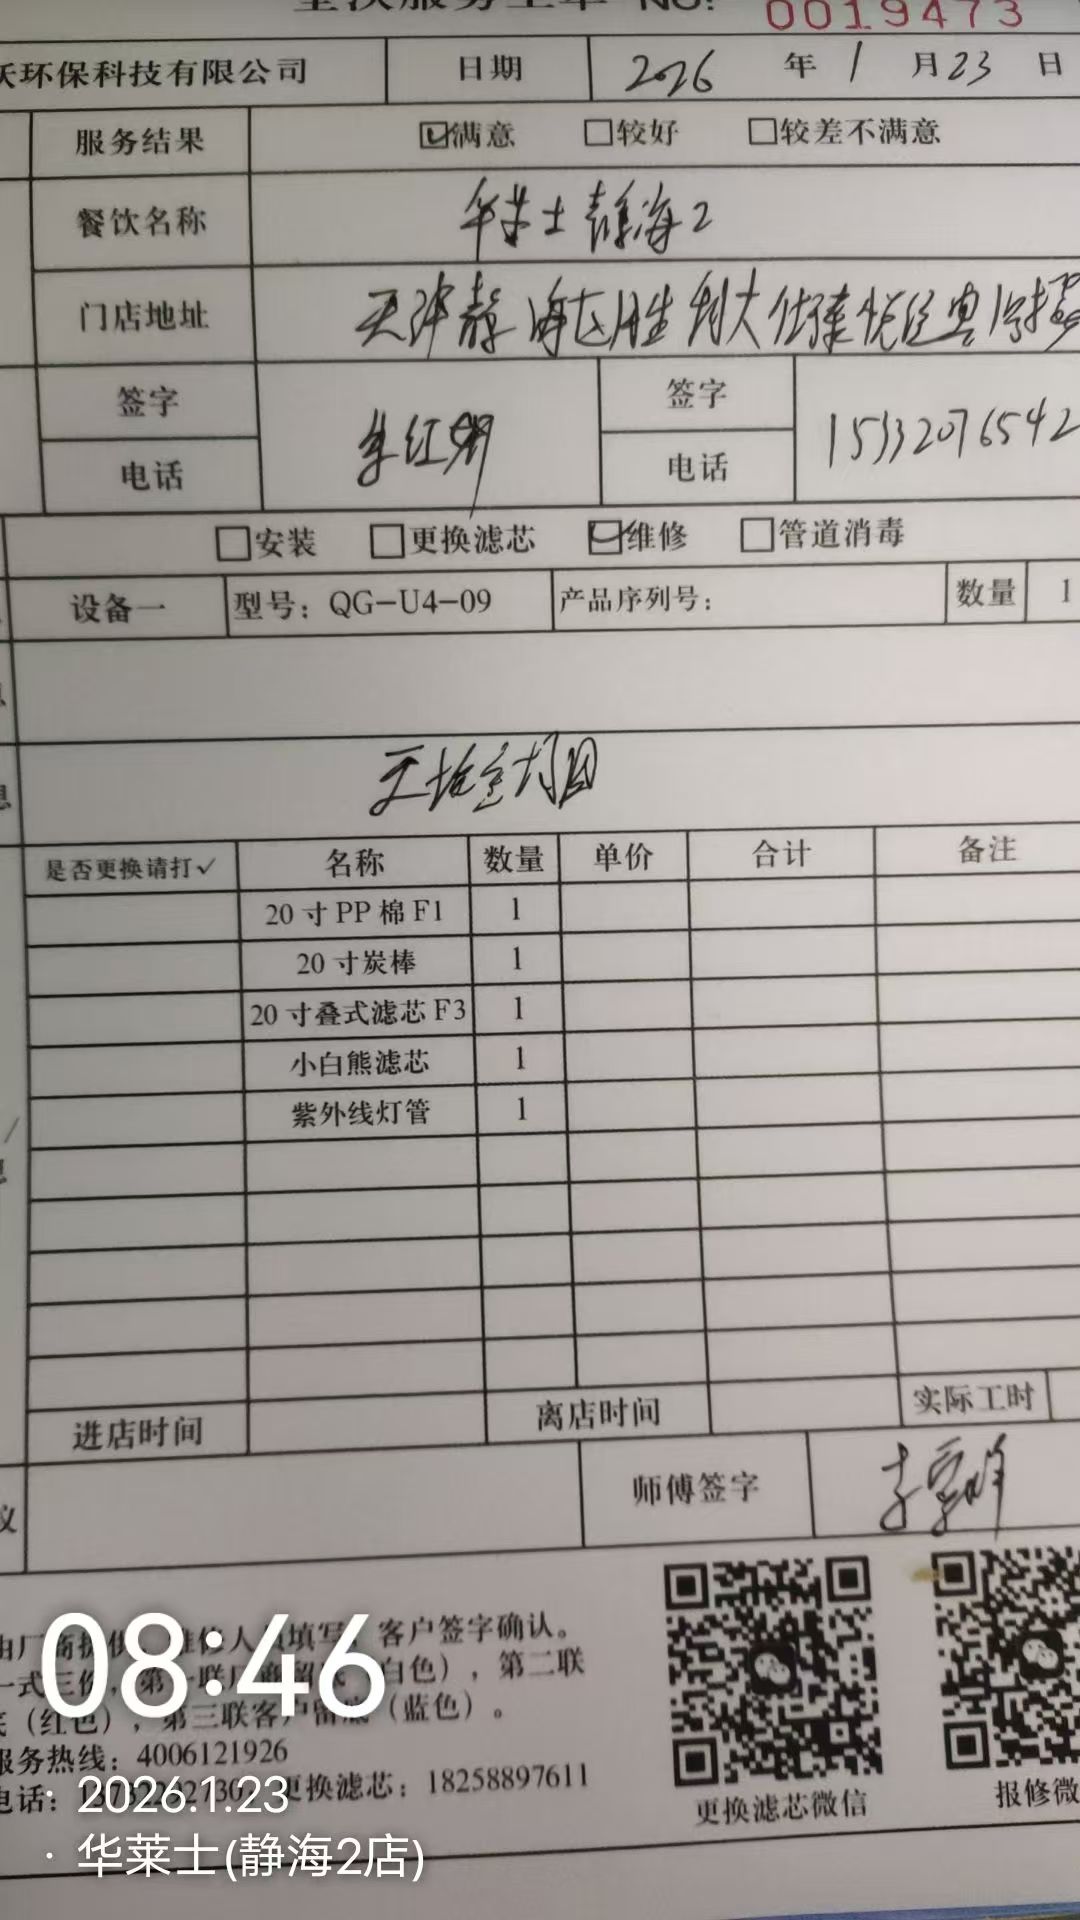 服务工单 NO: 0019473
沃环保科技有限公司 日期 2026 年 1 月 23 日
服务结果 ☑满意 ☐较好 ☐较差不满意
餐饮名称 华莱士静海2
门店地址 天津静海区胜利大街
签字 签字
电话 电话 15332076542
☐安装 ☐更换滤芯 ☑维修 ☐管道消毒
设备一 型号：QG-U4-09 产品序列号： 数量 1
是否更换请打✓ 名称 数量 单价 合计 备注
20寸PP棉F1 1
20寸炭棒 1
20寸叠式滤芯F3 1
小白熊滤芯 1
紫外线灯管 1
进店时间 离店时间 实际工时
议 师傅签字
由厂商提供，维修人员填写，客户签字确认。
一式三份，第一联厂商留底（白色），第二联
底（红色），第三联客户留底（蓝色）。
服务热线：4006121926
电话： 更换滤芯：18258897611
更换滤芯微信 报修微
08:46
· 2026.1.23
· 华莱士(静海2店)